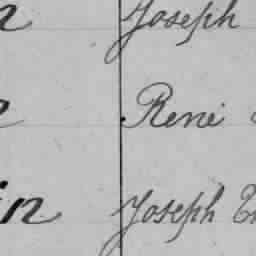 n Joseph
n René
in Joseph